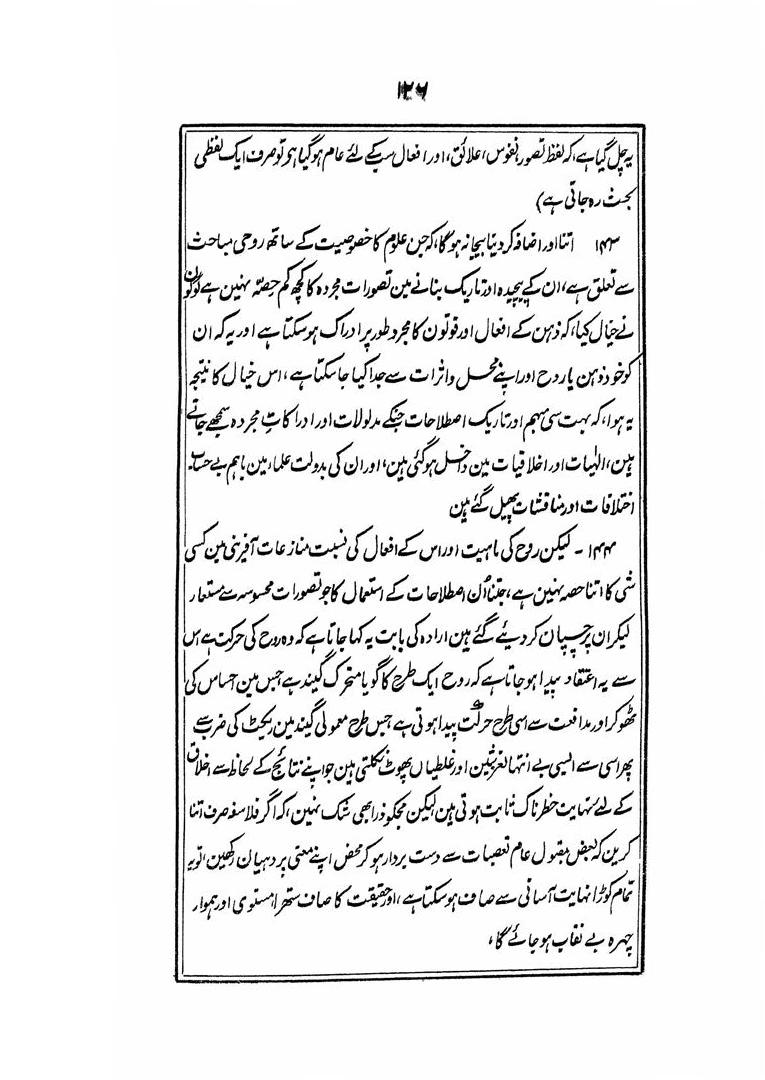 ۱۲۶
یہ چل گیا ہے، کہ لفظ تصور نفوس، علائق، اور افعال سبکے لئے عام ہو گیا ہو تو صرف ایک لفظی
بحث رہ جاتی ہے)
۱۴۳ اتنا اور اضافہ کر دینا بیجا نہ ہوگا، کہ جن علوم کا خصوصیت کے ساتھ روحی مباحث
سے تعلق ہے، ان کے پیچیدہ اور تاریک بنانے مین تصورات مجردہ کا کچھ کم حصّہ نہین ہے لوگون
نے خیال کیا، کہ ذہن کے افعال اور قوتون کا مجرد طور پر ادراک ہو سکتا ہے اور یہ کہ ان
کو خود ذہن یا روح اور اپنے محل و اثرات سے جدا کیا جا سکتا ہے، اس خیال کا نتیجہ
یہ ہوا، کہ بہت سی مبہم اور تاریک اصطلاحات جنکے مدلولات اور ادراکاتِ مجردہ سمجھے جاتے
ہین، الٰہیات اور اخلاقیات مین داخل ہو گئی ہین، اور ان کی بدولت علماء مین باہم بے حساب
اختلافات اور مناقشات پھیل گئے ہین
۱۴۴ - لیکن روح کی ماہیت اور اس کے افعال کی نسبت منازعات آفرینی مین کسی
شی کا اتنا حصہ نہین ہے، جتنا اُن اصطلاحات کے استعمال کا جو تصورات محسوسہ سے مستعار
لیکر ان پر چسپان کر دیئے گئے ہین ارادہ کی بابت یہ کہا جاتا ہے کہ وہ روح کی حرکت ہے اس
سے یہ اعتقاد پیدا ہو جاتا ہے کہ روح ایک طرح کا گویا متحرک گیند ہے جس مین احساس کی
ٹھوکر اور مدافعت سے اسی طرح حرکت پیدا ہوتی ہے جس طرح معمولی گیند مین ریکٹ کی ضرب سے
پھر اسی سے ایسی بے انتہا لغزشین اور غلطیاں پھوٹ نکلتی ہین جو اپنے نتائج کے لحاظ سے اخلاق
کے لئے نہایت خطرناک ثابت ہوتی ہین لیکن مجکو ذرا بھی شک نہین، کہ اگر فلاسفہ صرف اتنا
کرین کہ بعض مقبول عام تعصبات سے دست بردار ہو کر محض اپنے معنی پر دہیان رکھین، تو یہ
تمام کوڑا نہایت آسانی سے صاف ہو سکتا ہے، اور حقیقت کا صاف ستھرا مستوی اور ہموار
چہرہ بے نقاب ہو جائے گا،